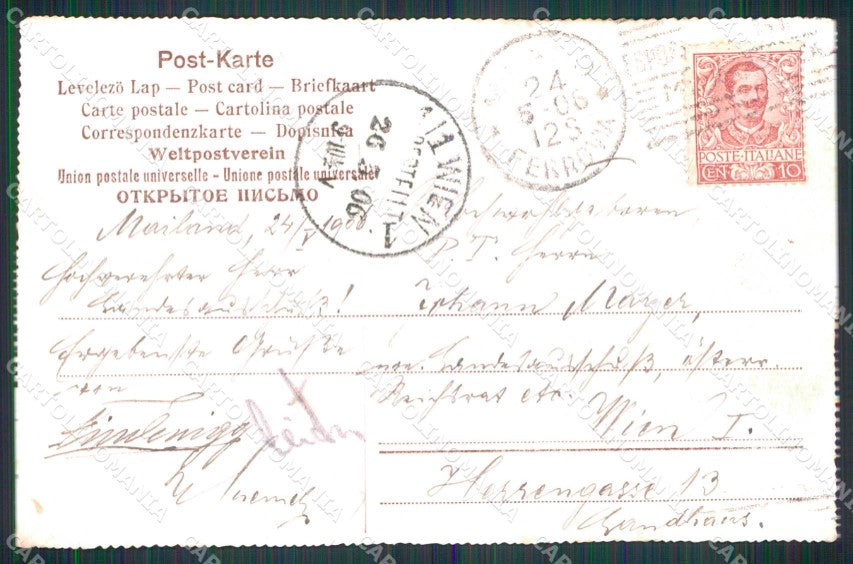 Post-Karte
Levelezö Lap — Post card — Briefkaart
Carte postale — Cartolina postale
Correspondenzkarte — Dopisnica
Weltpostverein
Union postale universelle - Unione postale universale
ОТКРЫТОЕ ПИСЬМО
24
5 06
12S
FERROVIA
POSTE·ITALIANE
CEN 10
1/1 WIEN 1
BESTELLT
26
06
Mailand, 24/V 1906.
Hochverehrter Herr
Landesausschuß!
Ergebenste Grüße
von
Hochwohlgeboren
P. T. Herrn
Johann Mayer,
nö. Landesausschuß, österr.
Reichsrat etc.
Wien I.
Herrengasse 13
Landhaus.
CARTOLINOMANIA